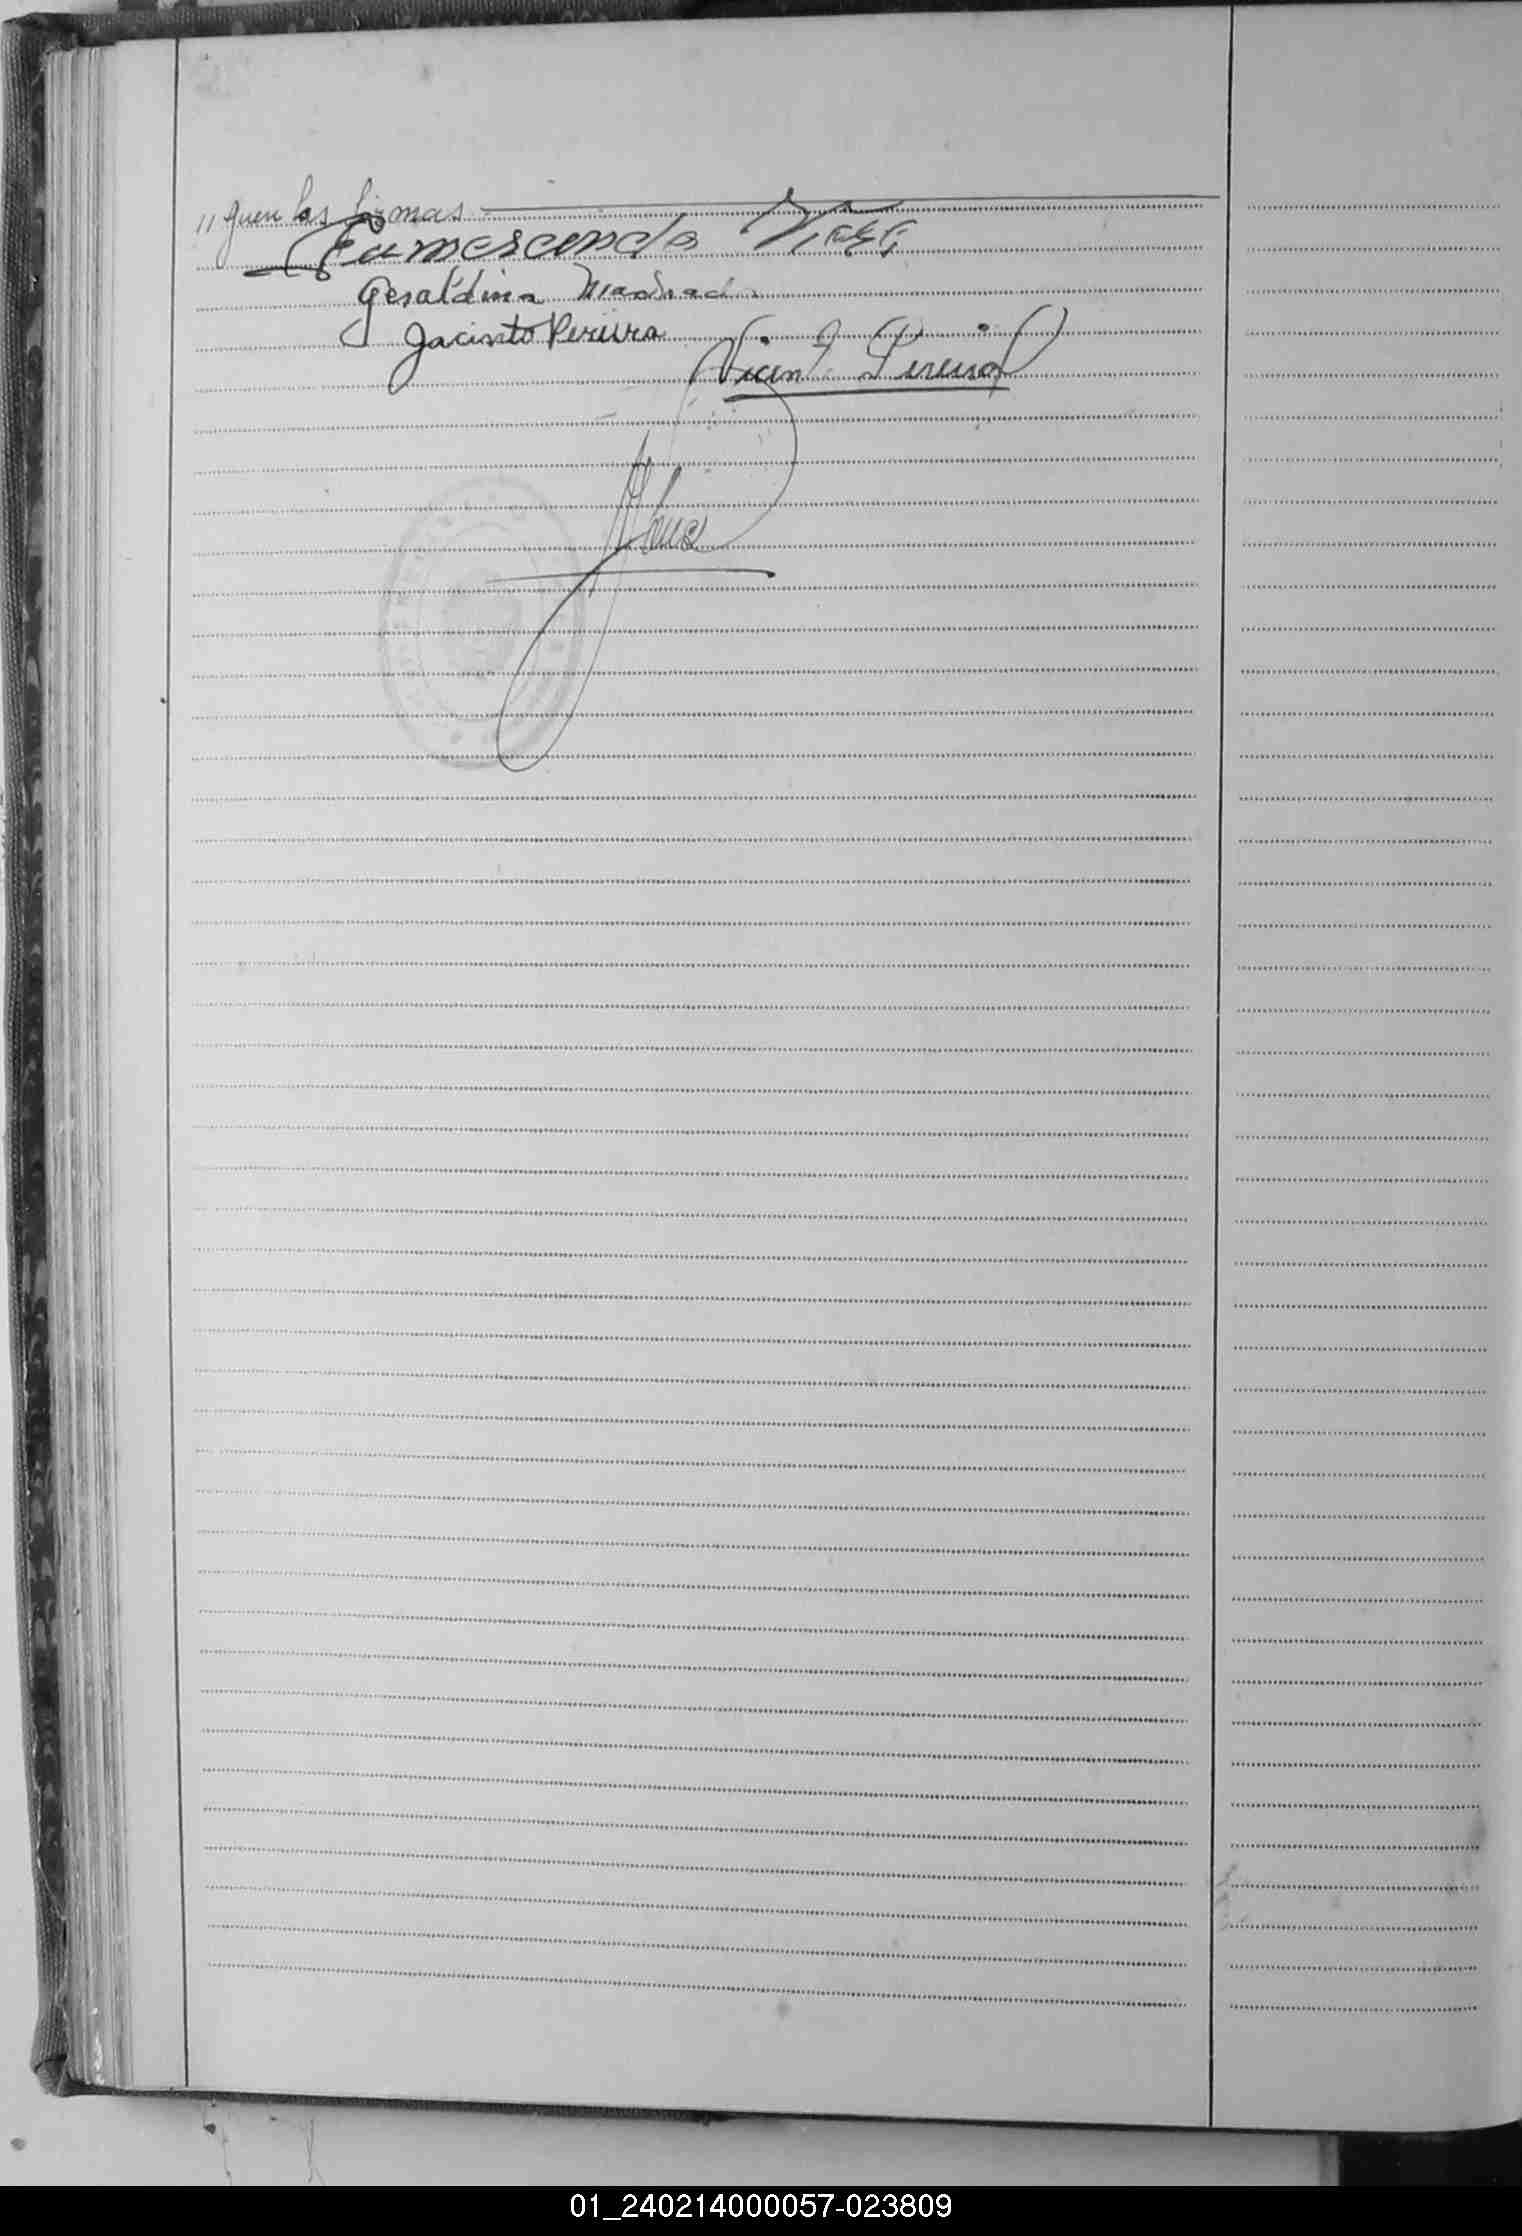 "guen las firmas
Gumercinda
Geraldina Madrada
Jacinto Pereira
Vicente Pereira
01_240214000057-023809